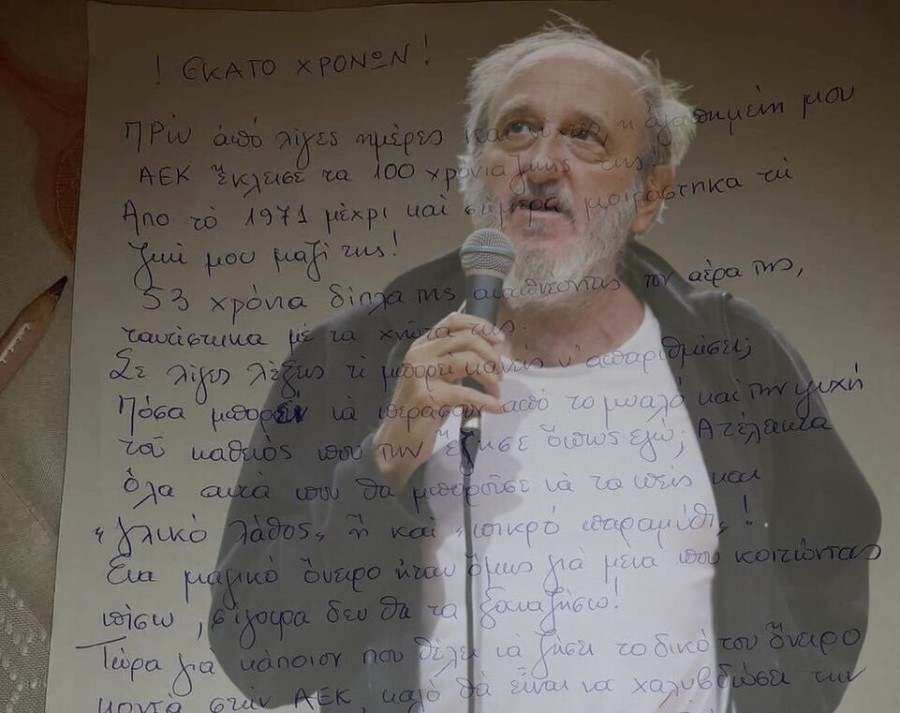 ! ΕΚΑΤΟ ΧΡΟΝΩΝ !
Πρίν ἀπό λίγες ημέρες η αγαπημένη μου
ΑΕΚ ἔκλεισε τα 100 χρόνια ζωής της!
Απο τὸ 1971 μέχρι καί σήμερα μοιράστηκα τή
ζωή μου μαζί της!
53 χρόνια δίπλα της αναπνέοντας τον αέρα της,
ταυτίστηκα μέ τα χνώτα της.
Σε λίγες λέξεις τί μπορεί κανείς ν' απαριθμήσει;
Πόσα μπορεί νά περάσουν από το μυαλό και την ψυχή
τοῦ καθενός που την ἔζησε ὅπως εγώ; Ατέλειωτα
ὅλα αυτά που θα μποροῦσε νά τα πείς και
"γλυκό λάθος" ἤ καί "πικρό παραμύθι"!
Ένα μαγικό ὄνειρο ήταν ὅμως γιά μενα που κοιτώντας
πίσω, σίγουρα δεν θα τα ξαναζήσω!
Τώρα για κάποιον που θέλει νά ζήσει το δικό του ὄνειρο
κοντά στήν ΑΕΚ, καλό θά εἶναι να χαλυβδώσει την